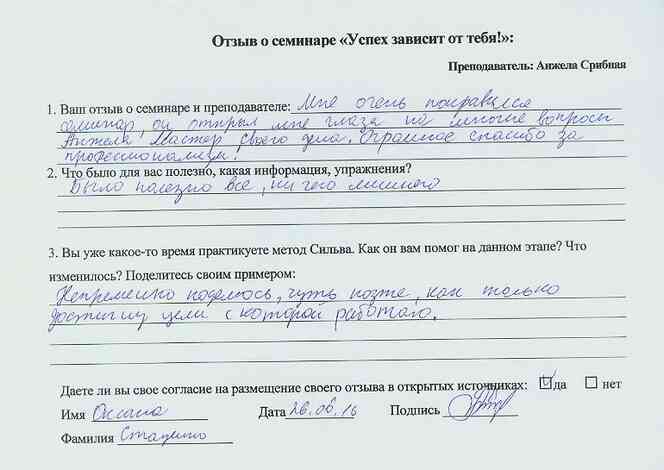 Отзыв о семинаре «Успех зависит от тебя!»:
Преподаватель: Анжела Срибная
1. Ваш отзыв о семинаре и преподавателе: Мне очень понравился
семинар, он открыл мне глаза на многие вопросы
Анжела Мастер своего дела. Огромное спасибо за
профессионализм!
2. Что было для вас полезно, какая информация, упражнения?
Было полезно все, ничего лишнего
3. Вы уже какое-то время практикуете метод Сильва. Как он вам помог на данном этапе? Что
изменилось? Поделитесь своим примером:
Непременно поделюсь, чуть позже, как только
достигну цели с которой работаю.
Даете ли вы свое согласие на размещение своего отзыва в открытых источниках: да нет
Имя Оксана Дата 26.06.16 Подпись
Фамилия